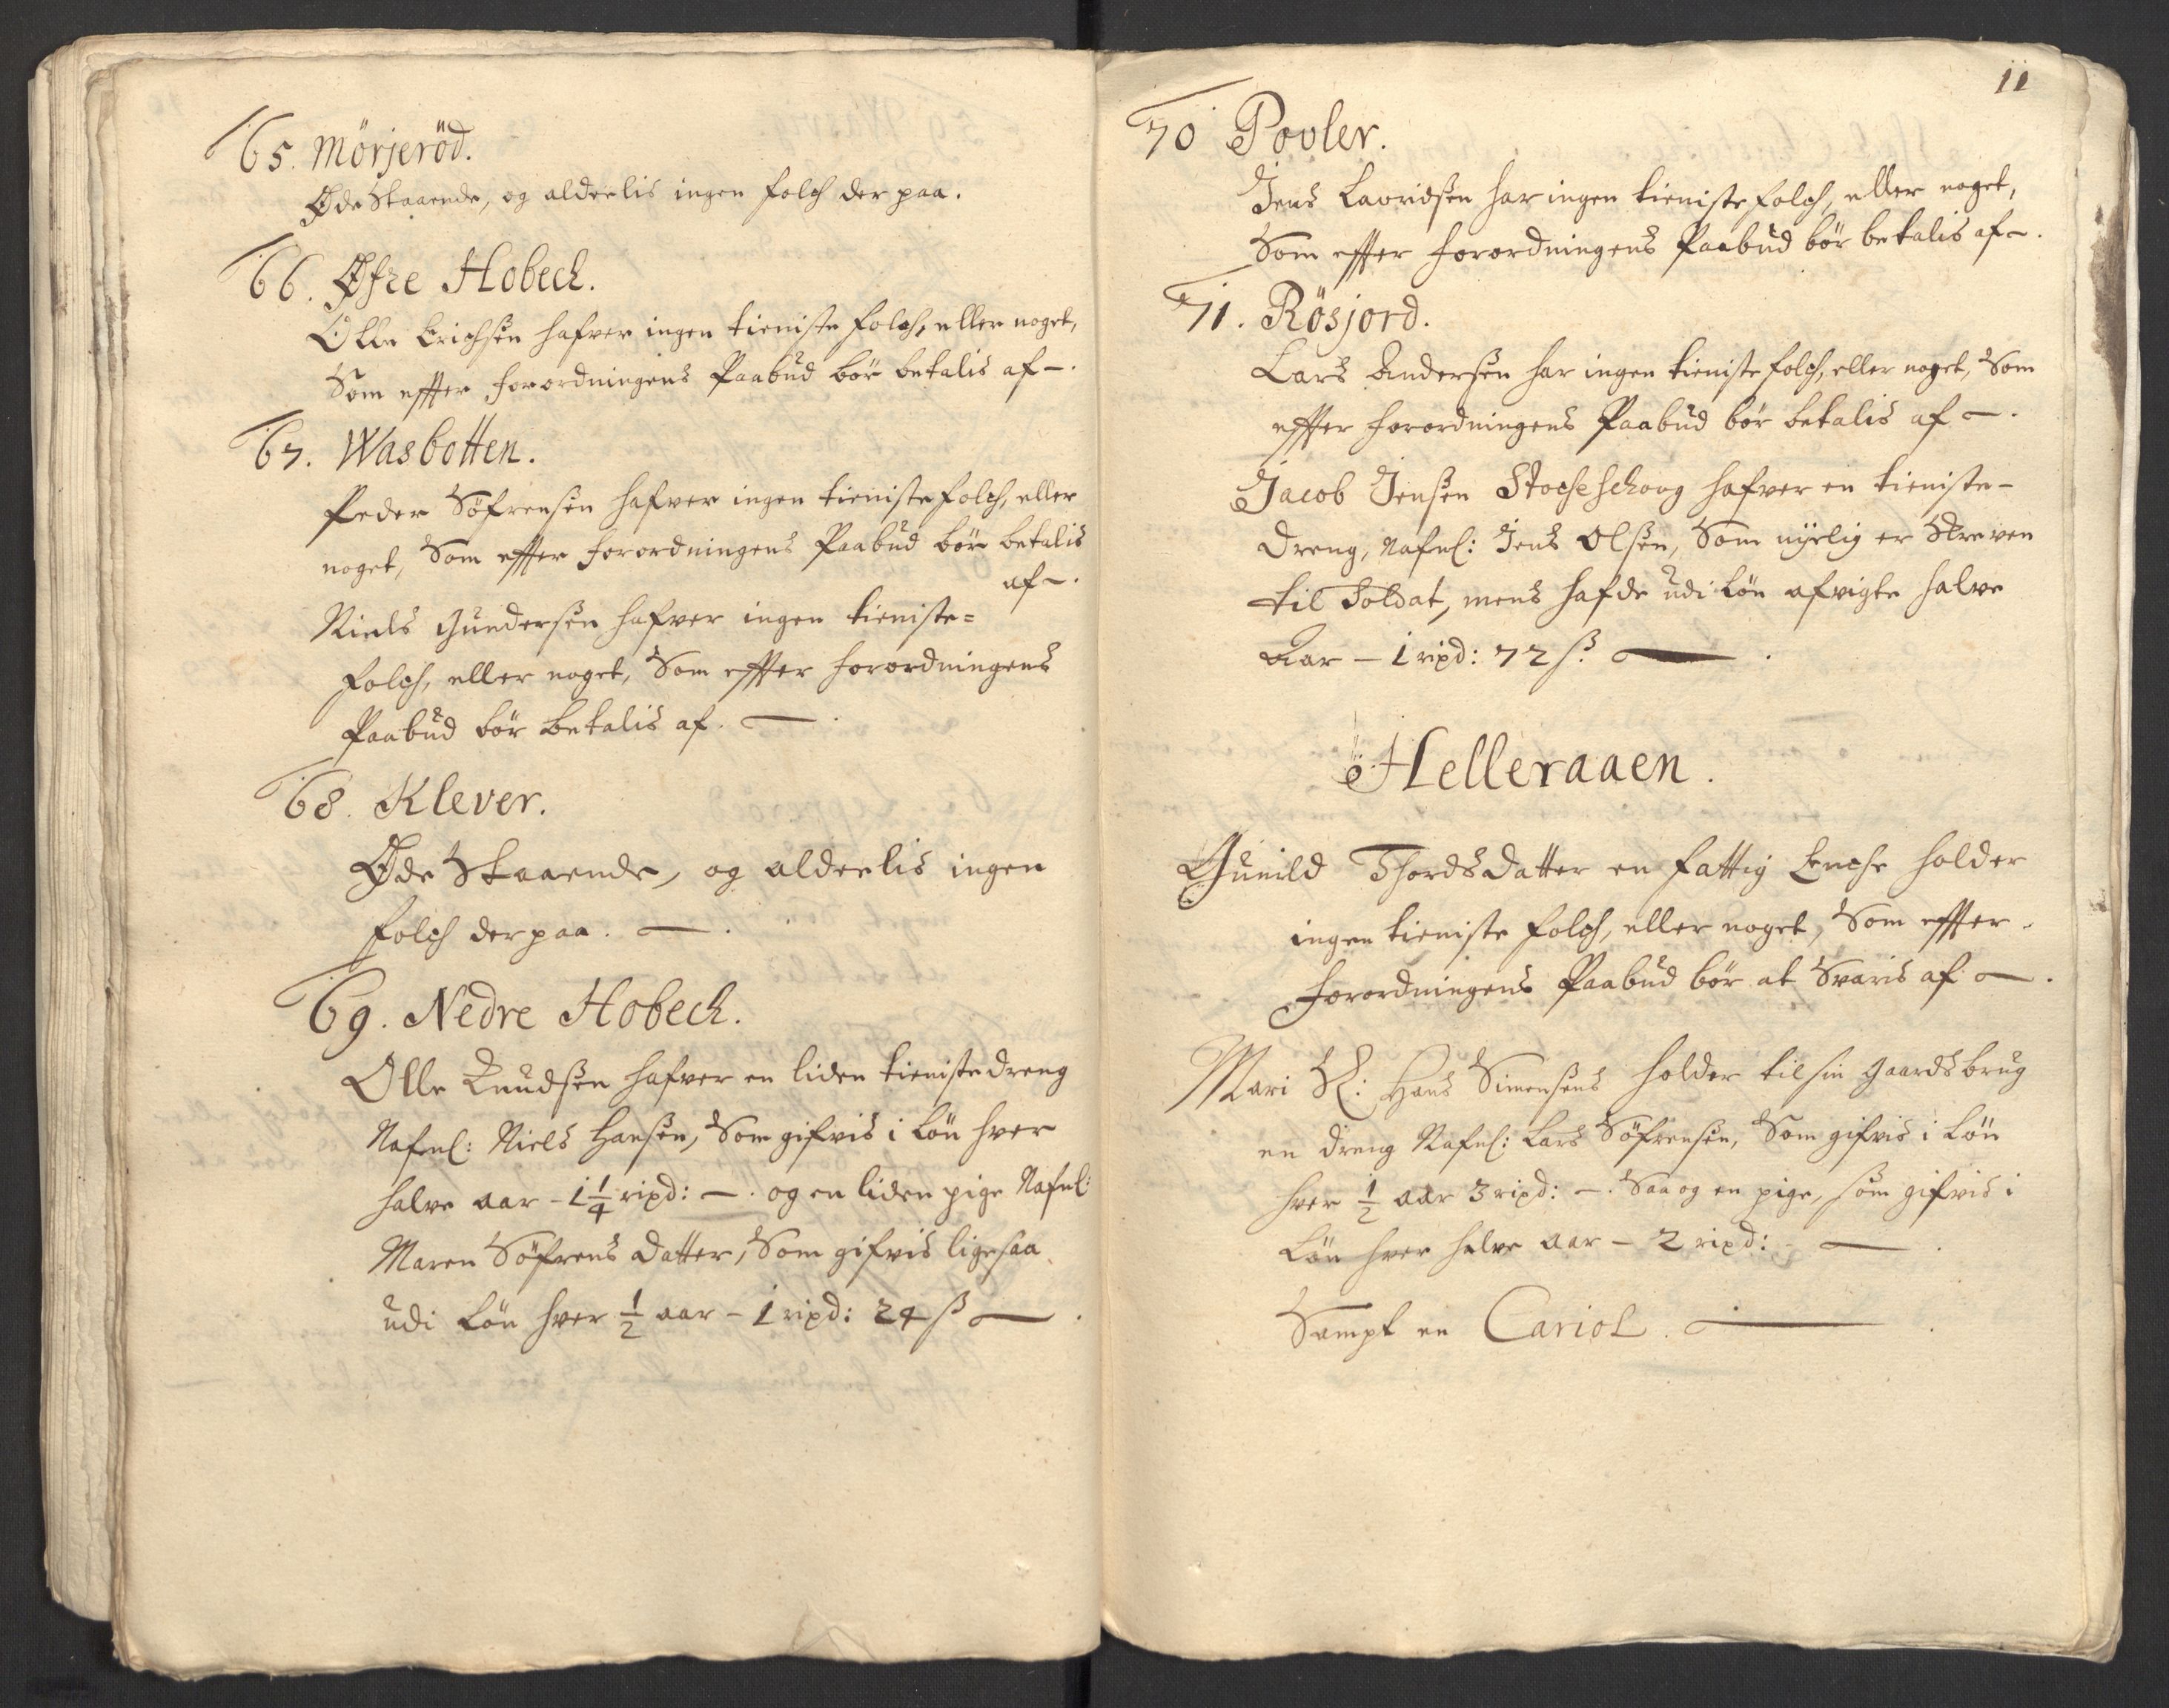 65. Mörjeröd.
Øde Staaende, og alderlis ingen folch der paa.
66. Øfre Hobech.
Olle Erichsen hafver ingen tieniste folch, eller noget,
Som effter forordningens Paabud bör betalis af –.
67. Wasbotten.
Peder Söfrensen hafver ingen tieniste folch, eller
noget, Som effter forordningens Paabud bör betalis
af –.
Niels Gundersen hafver ingen tieniste=
folch, eller noget, Som effter forordningens
Paabud bör betalis af. –.
68. Klever.
Øde Staaende, og alderlis ingen
folch der paa. –.
69. Nedre Hobech.
Olle Knudsen hafver en liden tieniste dreng
Nafnl: Niels Hansen, Som gifvis i Lön hver
halve aar – 1 1/4 rixd: –. og en liden pige Nafnl:
Maren Söfrens datter, Som gifvis ligesaa
udi Lön hver 1/2 aar – 1 rixd: 24 ß –.
11
70 Povler.
Jens Lavridsen har ingen tieniste folch, eller noget,
Som effter forordningens Paabud bör betalis af –.
71. Rösjord.
Lars Andersen har ingen tieniste folch, eller noget, Som
effter forordningens Paabud bör betalis af –.
Jacob Jensen Stocheschoug hafver en tieniste-
dreng, Nafnl: Jens Olsen, Som nyelig er Skreven
til Soldat, mens hafde udi Lön afvigte halve
Aar – 1 rixd: 72 ß. –.
Helleraaen.
Gunild Thords datter en fattig Enche holder
ingen tieniste folch, eller noget, Som effter
forordningens Paabud bör at Svaris af –.
Mari Sl: Hans Simensens holder til sin gaards brug
en dreng Nafnl: Lars Söfrensen, Som gifvis i Lön
hver 1/2 aar 3 rixd: –. Saa og en pige, som gifvis i
Lön hver halve aar – 2 rixd: –.
Sampt en Cariol. –.